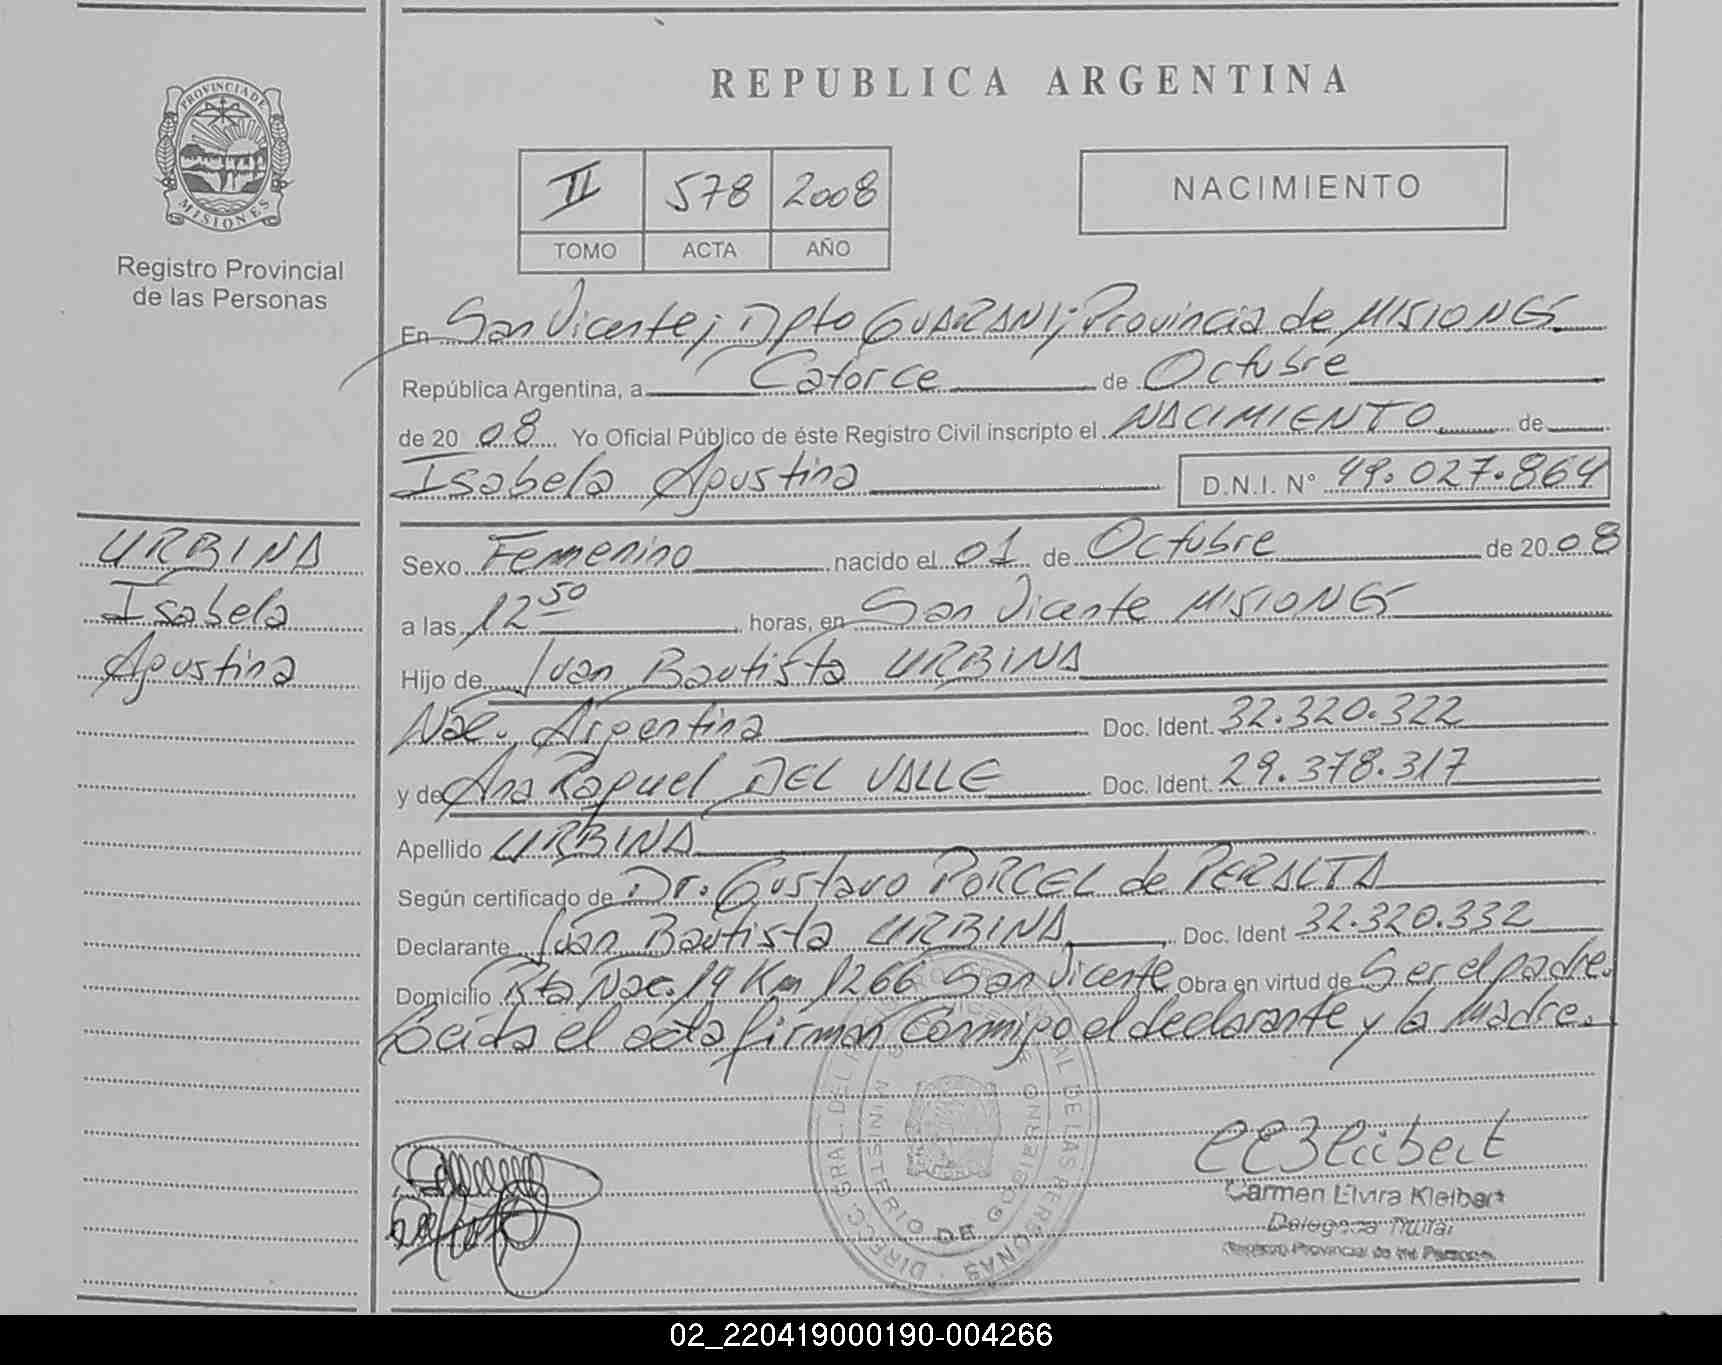 REPUBLICA ARGENTINA
PROVINCIA DE
MISIONES
Registro Provincial
de las Personas
II 578 2008
TOMO ACTA AÑO
NACIMIENTO
En San Vicente; Dpto GUARANI; Provincia de MISIONES
República Argentina, a Catorce de Octubre
de 20 08 Yo Oficial Público de éste Registro Civil inscripto el NACIMIENTO de
Isabela Agustina D.N.I. N° 49.027.864
URBINA
Isabela
Agustina
Sexo Femenino nacido el 01 de Octubre de 20 08
a las 12 50 horas, en San Vicente MISIONES
Hijo de Juan Bautista URBINA
Nac. Argentina Doc. Ident. 32.320.322
y de Ana Raquel DEL VALLE Doc. Ident. 29.378.317
Apellido URBINA
Según certificado de Dr. Gustavo PORCEL de PERALTA
Declarante Juan Bautista URBINA Doc. Ident 32.320.332
Domicilio Rta Nac. 14 Km 1266 San Vicente Obra en virtud de Ser el padre.
Leida el acta firman Conmigo el declarante y la Madre.
DIRECC. GRAL. DEL DE LAS PERSONAS
MINISTERIO DE GOBIERNO
Carmen Elvira Kleibert
Delegada Titular
Registro Provincial de las Personas
02_220419000190-004266